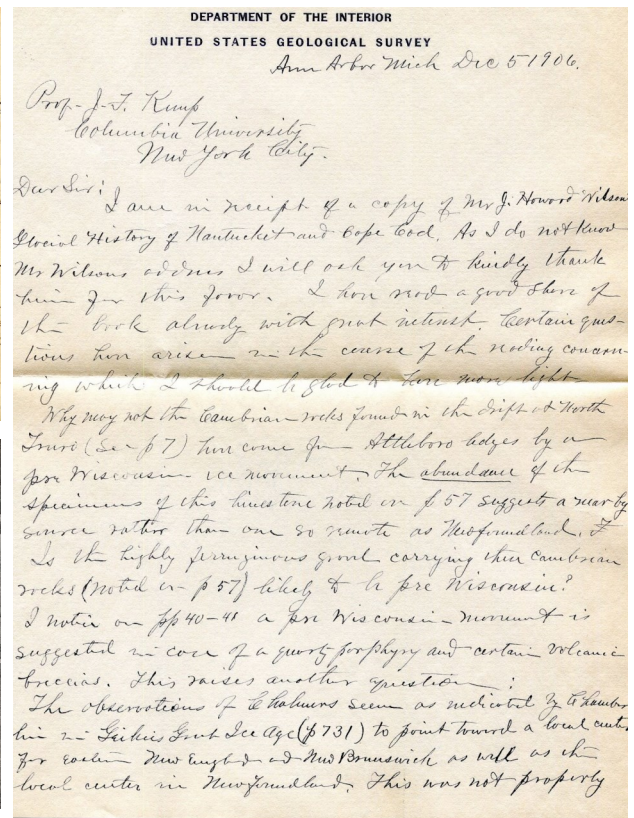 DEPARTMENT OF THE INTERIOR
UNITED STATES GEOLOGICAL SURVEY
Ann Arbor Mich Dec 5 1906.
Prof. J. F. Kemp
Columbia University
New York City.
Dear Sir:
I am in receipt of a copy of Mr J. Howard Wilsons
Glacial History of Nantucket and Cape Cod. As I do not know
Mr Wilsons address I will ask you to kindly thank
him for this favor. I have read a good share of
the book already with great interest. Certain ques-
tions have arisen in the course of the reading concern-
ing which I should be glad to have more light
Why may not the Cambrian rocks found in the drift at North
Truro (See p 7) have come from Attleboro ledges by a
pre Wisconsin ice movement. The abundance of the
specimens of this limestone noted on p 57 suggests a near by
source rather than one so remote as Newfoundland.
Is the highly ferruginous gravel carrying these Cambrian
rocks (noted on p 57) likely to be pre Wisconsin?
I notice on pp 40-41 a pre Wisconsin movement is
suggested in case of a quartz porphyry and certain volcanic
breccias. This raises another question:
The observations of Chalmers seem as indicated by Chamber
lin in Geikies Great Ice Age (p 731) to point toward a local center
for eastern New England and New Brunswick as well as the
local center in Newfoundland. This was not properly